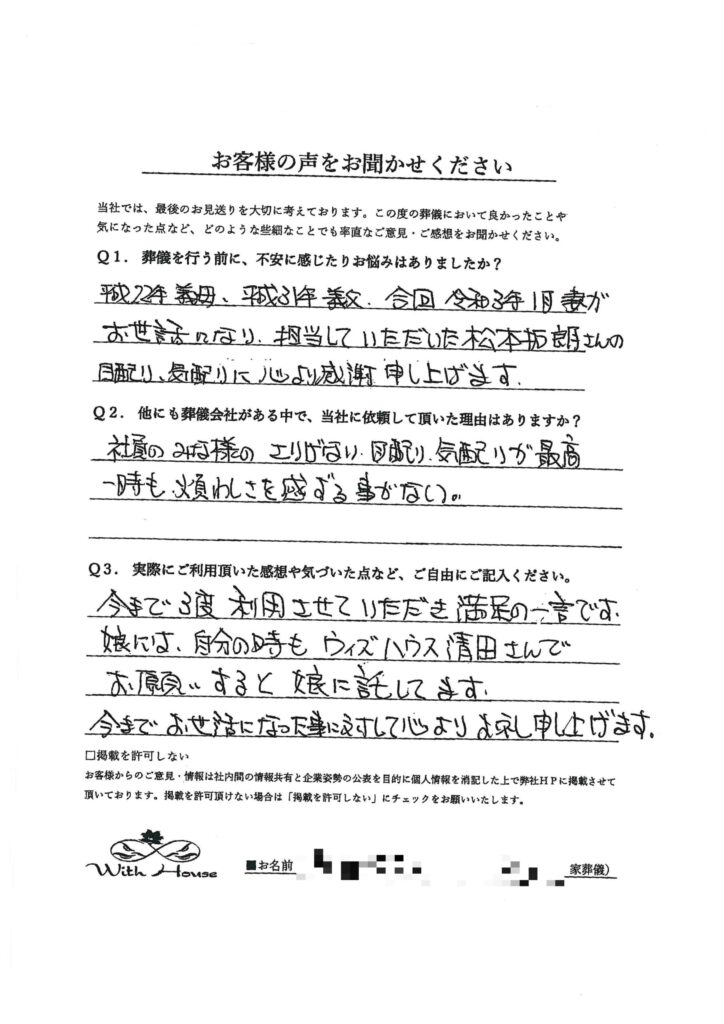 お客様の声をお聞かせください
当社では、最後のお見送りを大切に考えております。この度の葬儀において良かったことや
気になった点など、どのような些細なことでも率直なご意見・ご感想をお聞かせください。
Q1. 葬儀を行う前に、不安に感じたりお悩みはありましたか？
平成22年義母、平成31年義父、今回令和3年1月妻が
お世話になり、担当していただいた松本拓朗さんの
目配り、気配りに心より感謝申し上げます.
Q2. 他にも葬儀会社がある中で、当社に依頼して頂いた理由はありますか？
社員のみな様の 目配り、気配りが最高
一時も煩わしさを感ずる事がない。
Q3. 実際にご利用頂いた感想や気づいた点など、ご自由にご記入ください。
今まで3度利用させていただき満足の一言です.
娘には、自分の時もウィズハウス清田さんで
お願いすると娘に託してます.
今までお世話になった事に対して心よりお礼申し上げます.
□掲載を許可しない
お客様からのご意見・情報は社内間の情報共有と企業姿勢の公表を目的に個人情報を消記した上で弊社HPに掲載させて
頂いております。掲載を許可頂けない場合は「掲載を許可しない」にチェックをお願いいたします。
With House
■お名前 家葬儀）